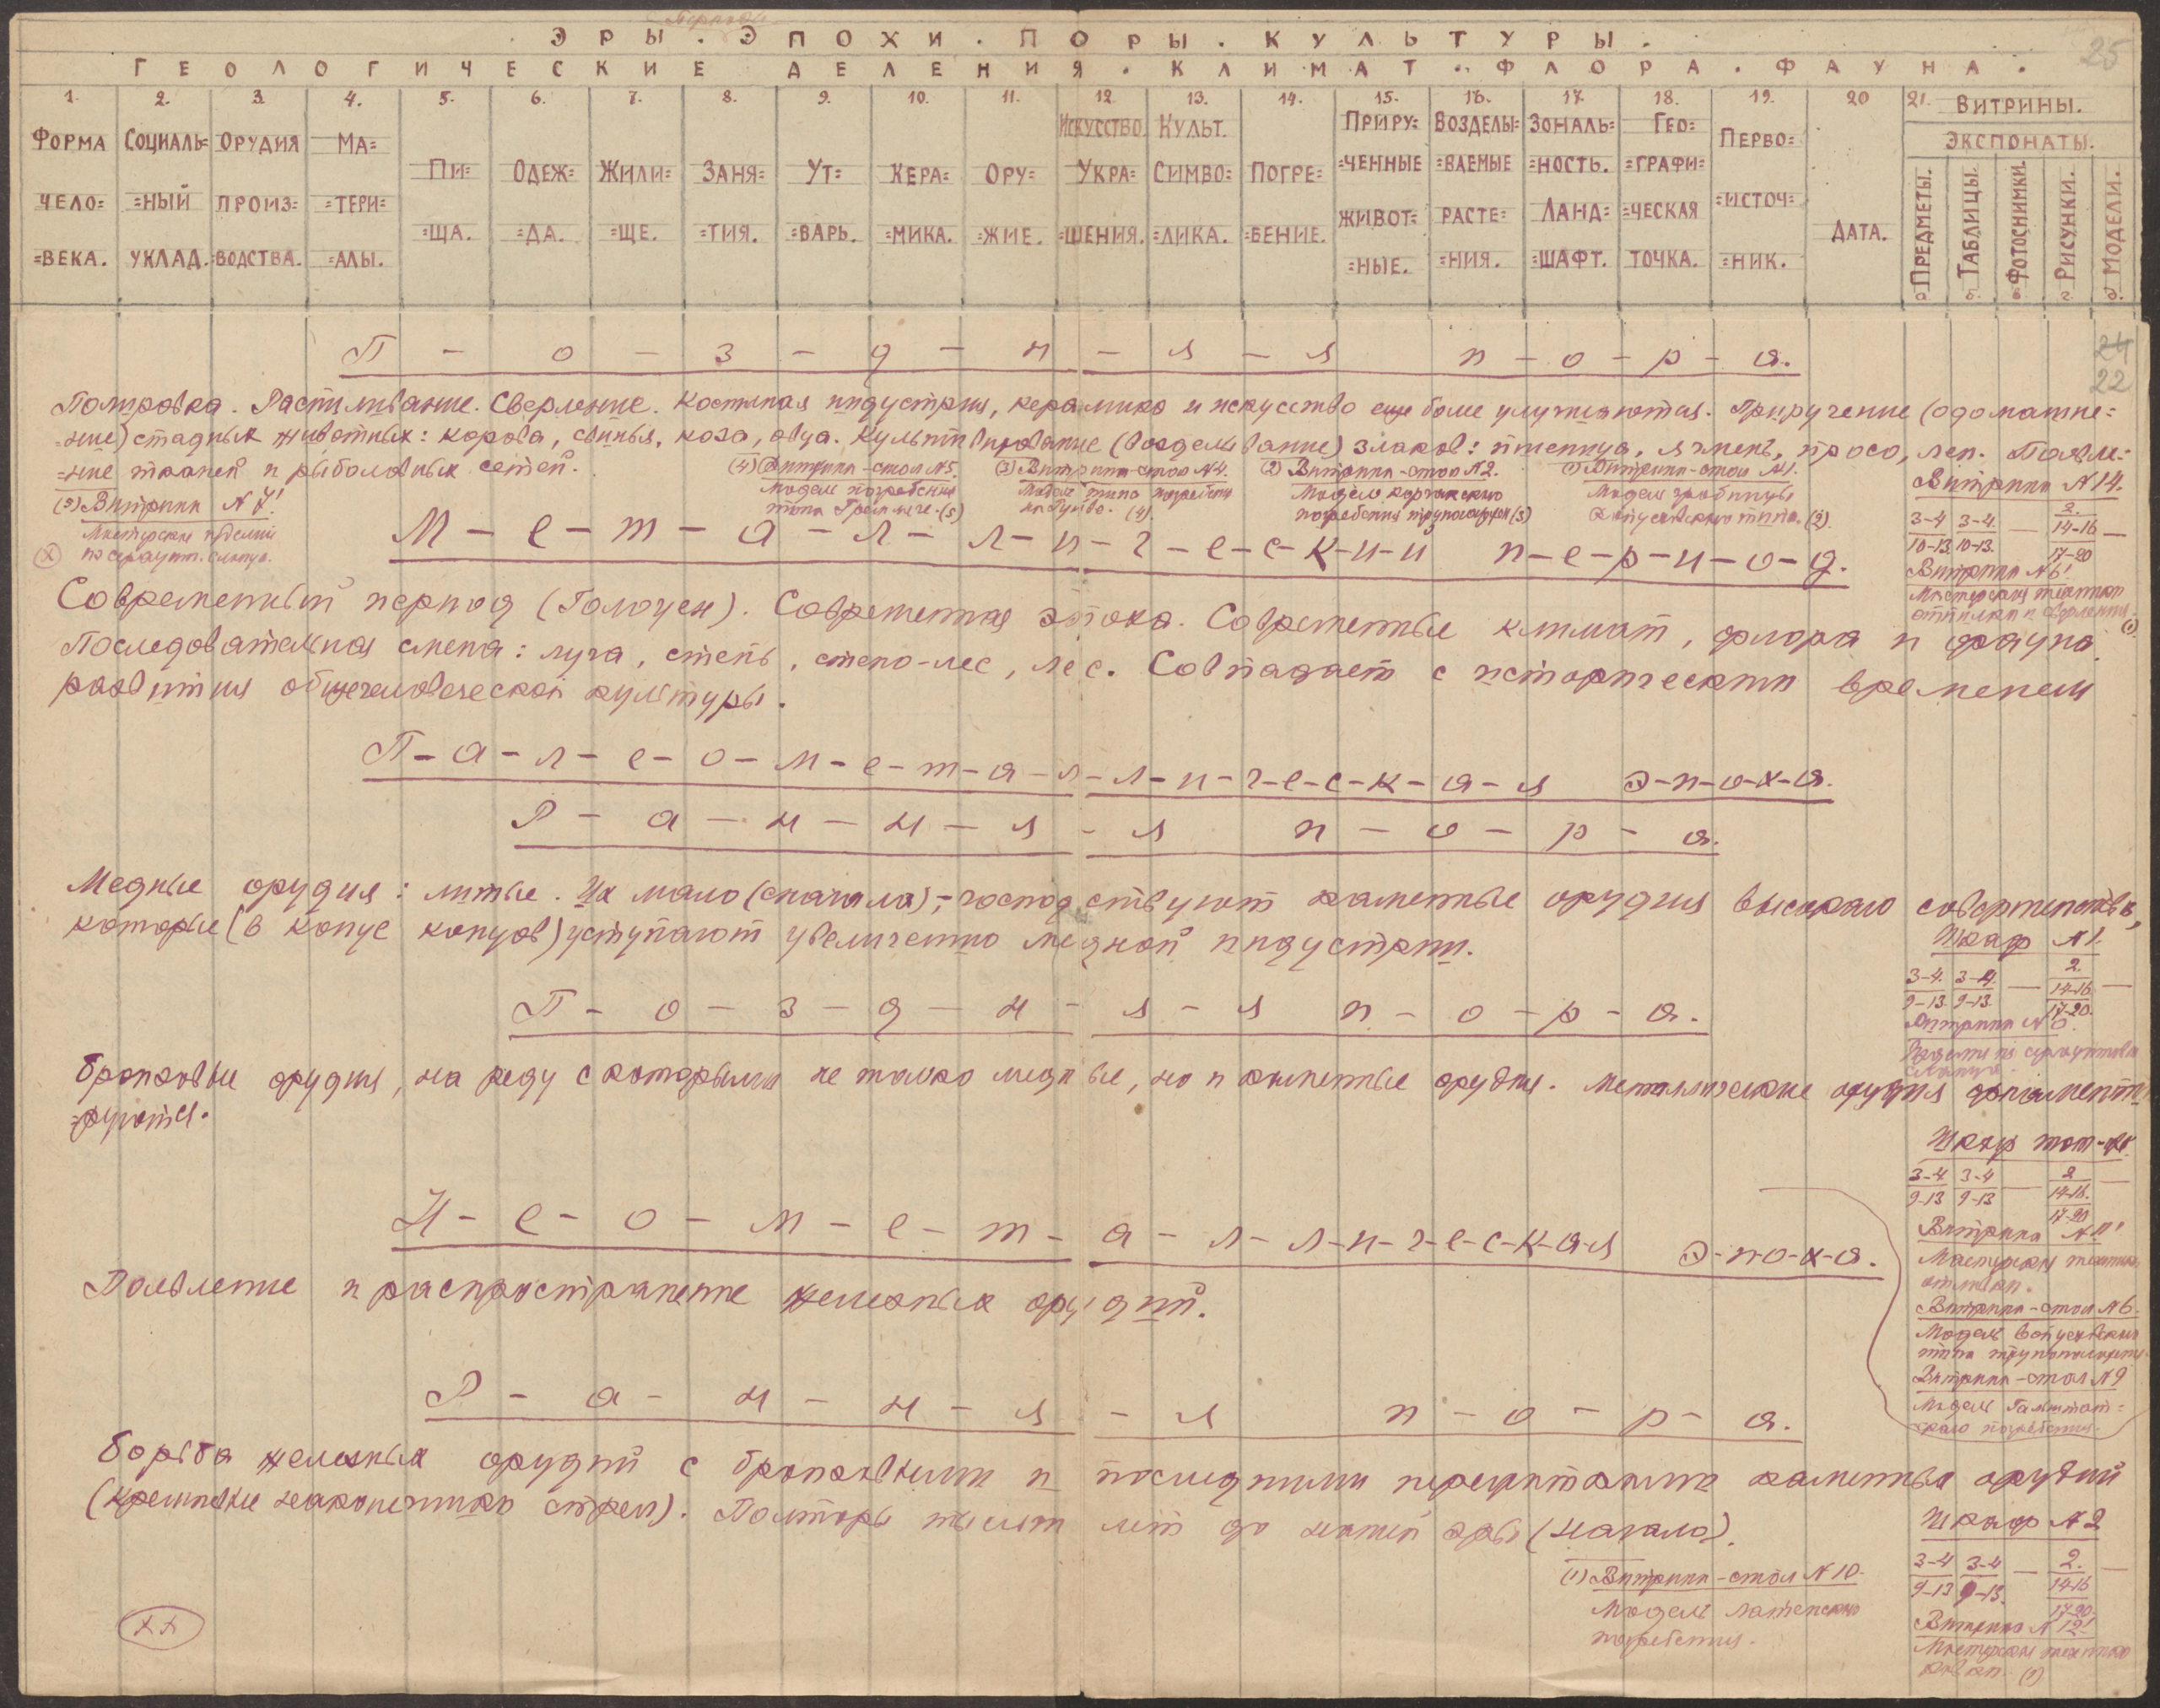 Периоды
ЭРЫ. ЭПОХИ. ПОРЫ. КУЛЬТУРЫ.
25
ГЕОЛОГИЧЕСКИЕ ДЕЛЕНИЯ. КЛИМАТ. ФЛОРА. ФАУНА.
1. ФОРМА ЧЕЛО= =ВЕКА.
2. СОЦИАЛЬ= =НЫЙ УКЛАД.
3. ОРУДИЯ ПРОИЗ= =ВОДСТВА.
4. МА= =ТЕРИ= =АЛЫ.
5. ПИ= =ЩА.
6. ОДЕЖ= =ДА.
7. ЖИЛИ= =ЩЕ.
8. ЗАНЯ= =ТИЯ.
9. УТ= =ВАРЬ.
10. КЕРА= =МИКА.
11. ОРУ= =ЖИЕ.
12. ИСКУССТВО. УКРА= =ШЕНИЯ.
13. КУЛЬТ. СИМВО= =ЛИКА.
14. ПОГРЕ= =БЕНИЕ.
15. ПРИРУ= =ЧЕННЫЕ ЖИВОТ= =НЫЕ.
16. ВОЗДЕЛЫ= =ВАЕМЫЕ РАСТЕ= =НИЯ.
17. ЗОНАЛЬ= =НОСТЬ. ЛАНД= =ШАФТ.
18. ГЕО= =ГРАФИ= =ЧЕСКАЯ ТОЧКА.
19. ПЕРВО= =ИСТОЧ= =НИК.
20 ДАТА.
21. ВИТРИНЫ.
ЭКСПОНАТЫ.
а. ПРЕДМЕТЫ.
б. ТАБЛИЦЫ.
в. ФОТОСНИМКИ.
г. РИСУНКИ.
д. МОДЕЛИ.
П-о-з-д-н-я-я п-о-р-а.
24
22
Полировка. Распиливание. Сверление. Костяная индустрия, керамика и искусство еще более улучшаются. Приручение (одомашне=
=ние) стадных животных: корова, свинья, коза, овца. Культивирование (возделывание) злаков: пшеница, ячмень, просо, лен. Появле=
=ние тканей и рыболовных сетей.
(4) Витрина-стол №5.
Модель погребения
типа (5)
(3) Витрина-стол №4.
Модель типа погребения
(4).
(2) Витрина-стол №2.
Модель
погребения трупосожжения (3)
(1) Витрина-стол №1.
Модель гробницы
типа. (2).
(5) Витрина №7!
Мастерская изделий
(х) по
Витрина №14.
3-4 3-4. — 2. —
10-13 10-13. 14-16
17-20
Витрина №6!
Мастерская техники
(1)
М-е-т-а-л-л-и-ч-е-с-к-и-й п-е-р-и-о-д.
Современный период (Голоцен). Современная эпоха. Современные климат, флора и фауна.
Последовательная смена: луга, степь, степо-лес, лес. Совпадает с историческим временем
развития общечеловеческой культуры.
П-а-л-е-о-м-е-т-а-л-л-и-ч-е-с-к-а-я э-п-о-х-а.
Р-а-н-н-я-я п-о-р-а.
Медные орудия: литые. Их мало (сначала),-господствуют каменные орудия высокого совершенства,
которые (в конце концов) уступают увеличению медной индустрии.
Шкаф №1.
3-4. 3-4. — 2. —
9-13. 9-13. 14-16.
17-20.
П-о-з-д-н-я-я п-о-р-а.
Бронзовые орудия, на ряду с которыми не только медные, но и каменные орудия. Металлические орудия орнаменти=
=руются.
Шкаф тот-же.
3-4. 3-4 — 2 —
9-13 9-13 14-16.
17-20
Витрина №11!
Мастерская техники
отливки.
Витрина-стол №6.
Модель
типа трупоположения.
Витрина-стол №9
Модель Гальштат=
=ского погребения.
Н-е-о-м-е-т-а-л-л-и-ч-е-с-к-а-я э-п-о-х-а.
Появление и распространение железных орудий.
Р-а-н-н-я-я п-о-р-а.
Борьба железных орудий с бронзовыми и последними пережитками каменных орудий
(кремневые наконечники стрел). Полторы тысячи лет до нашей эры (начало).
Шкаф №2
3-4 3-4 — 2. —
9-13 9-13. 14-16
17-20.
Витрина №12!
Мастерская техники
(1)
(1) Витрина-стол №10.
Модель Латенского
погребения.
хх